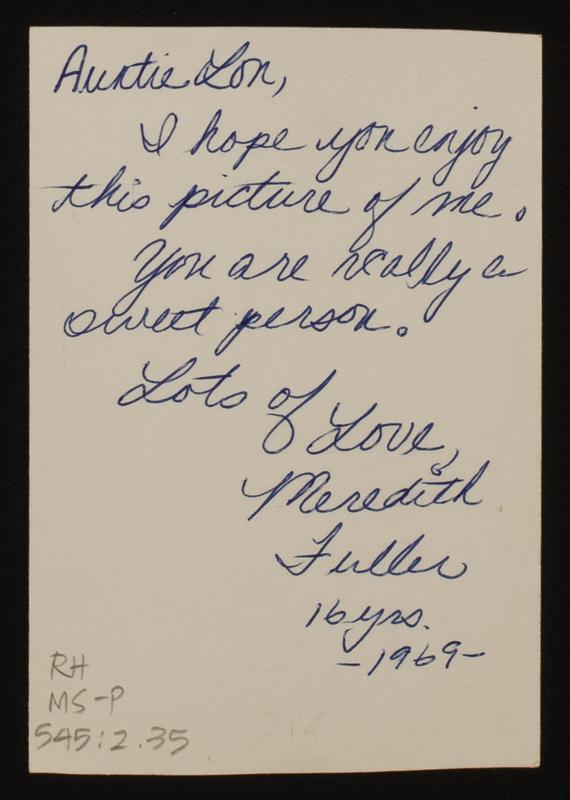 Auntie Lon,
I hope you enjoy
this picture of me.
You are really a
sweet person.
Lots of Love,
Meredith
Fuller
16 yrs.
-1969-
RH
MS-P
545:2.35